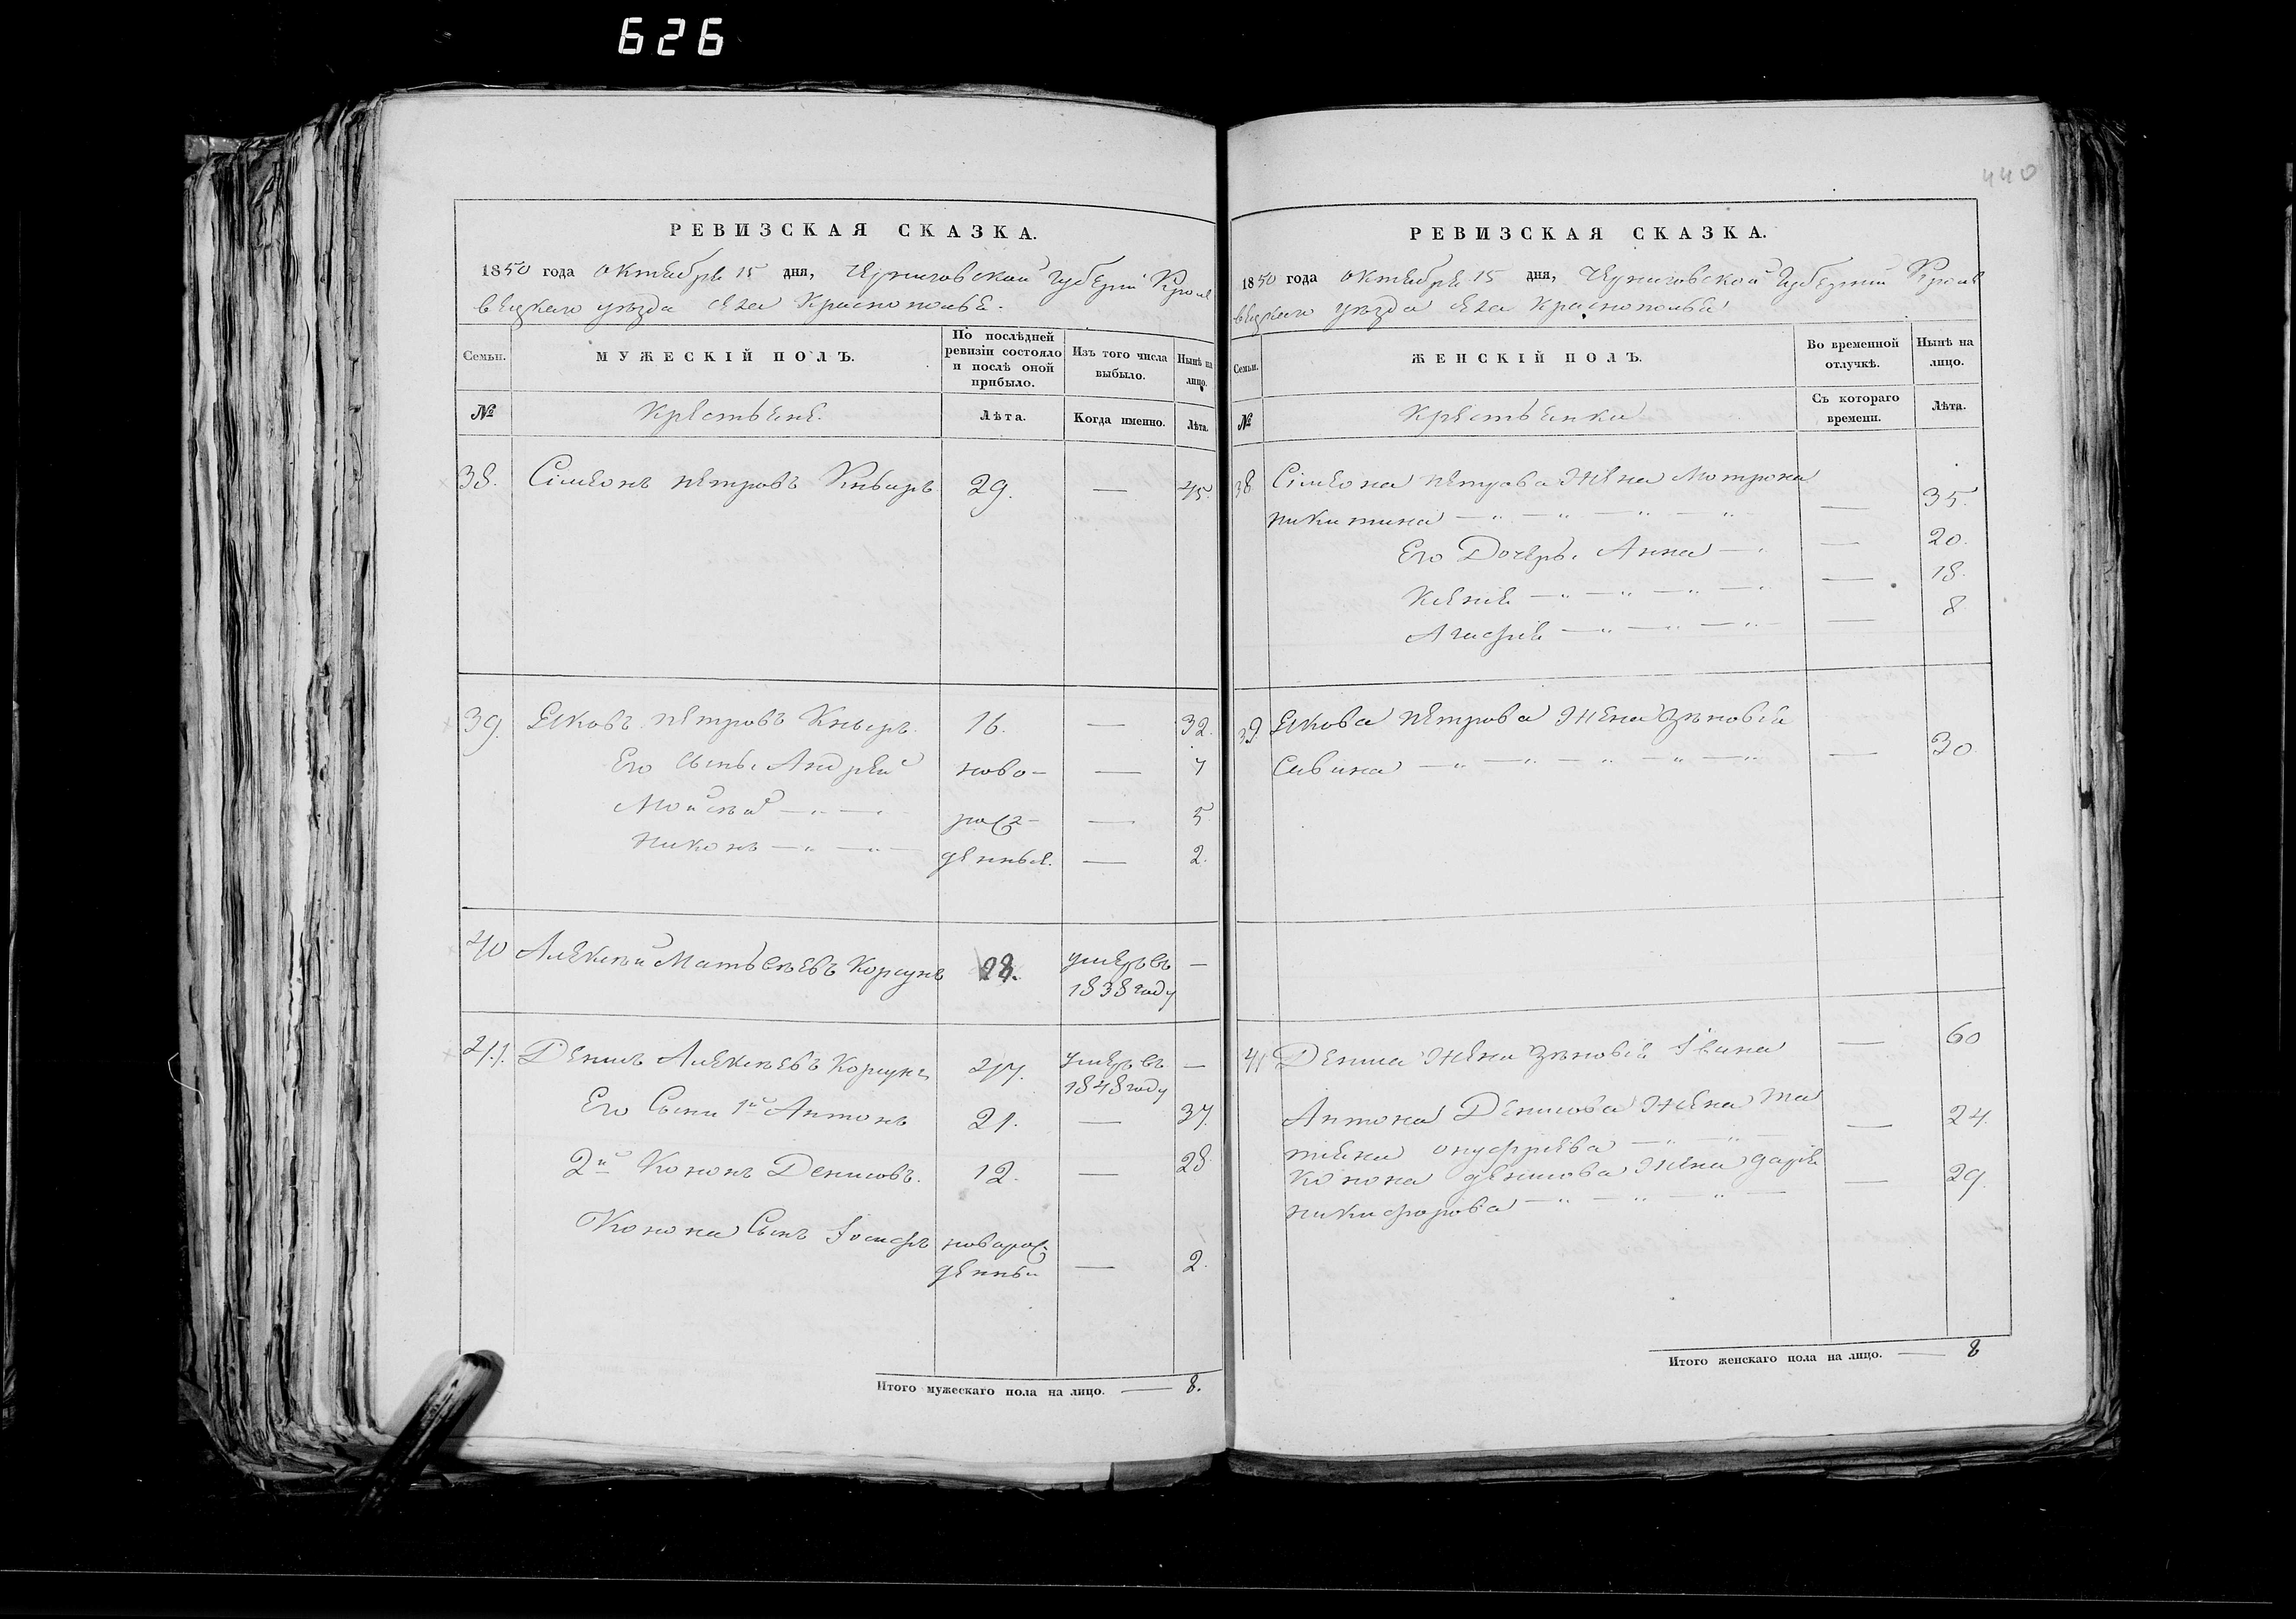 626
440
РЕВИЗСКАЯ СКАЗКА.
1850 года октября 15 дня, Черниговской Губерніи Кроле
вецкаго уѣзда села Краснополья.
Семьи.
МУЖЕСКІЙ ПОЛЪ.
По послѣдней ревизіи состояло и послѣ оной прибыло.
Изъ того числа выбыло.
Нынѣ на лицо.
№
Крестьяне.
Лѣта.
Когда именно.
Лѣта.
38. Сімеонъ Петровъ 29. — 45.
39. Яковъ Петровъ 16. — 32.
Его Сынъ. Андрей ново- — 7
Мойсѣй — „ — рож- — 5
Никонъ — „ — „ — денныя. — 2.
40 Алексѣй Матвѣевъ Корсунъ 28. умеръ въ —
1838 году
41. Денисъ Алексѣевъ Корсунъ 47. Умеръ въ —
1848 году
Его Сыни 1й Антонъ 21. — 37.
2й Кононъ Денисовъ. 12. — 28
Конона Сынъ Іосифъ новорож
денный — 2.
Итого мужескаго пола на лицо. — 8.
РЕВИЗСКАЯ СКАЗКА.
1850 года октября 15 дня, Черниговской Губерніи Кроле
вецкаго уѣзда села Краснополья
Семьи.
ЖЕНСКІЙ ПОЛЪ.
Во временной отлучкѣ.
Нынѣ на лицо.
№
Крестьянки
Съ котораго времени.
Лѣта.
38 Сімеона Петрова Жена Мотрона
Никитина — „ — „ — „ — „ — 35.
Его Дочерь. Анна — . — 20.
Ксенія — „ — „ — „ — . — 18.
Агафія — „ — „ — „ — 8
39. Якова Петрова Жена Зѣновія
Савина — „ — „ — „ — „ — „ — 30.
41 Дениса Жена Зѣновія Івана — 60
Антона Денисова Жена Та
тіяна Онуфріева — „ — „ — — 24.
Конона Денисова Жена Дарія
Никифорова — „ — „ — „ — — 29.
Итого женскаго пола на лицо. — 8